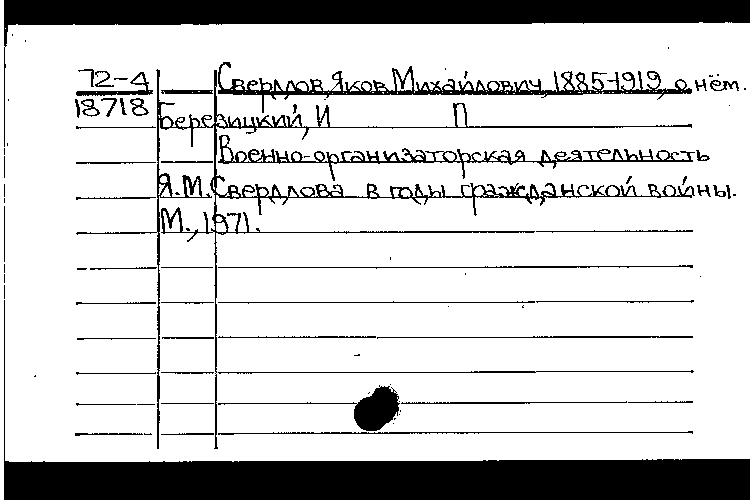 72-4 Свердлов, Яков Михайлович, 1885-1919, о нём.
18718 Березицкий, И П
Военно-организаторская деятельность
Я.М. Свердлова в годы гражданской войны.
М., 1971.